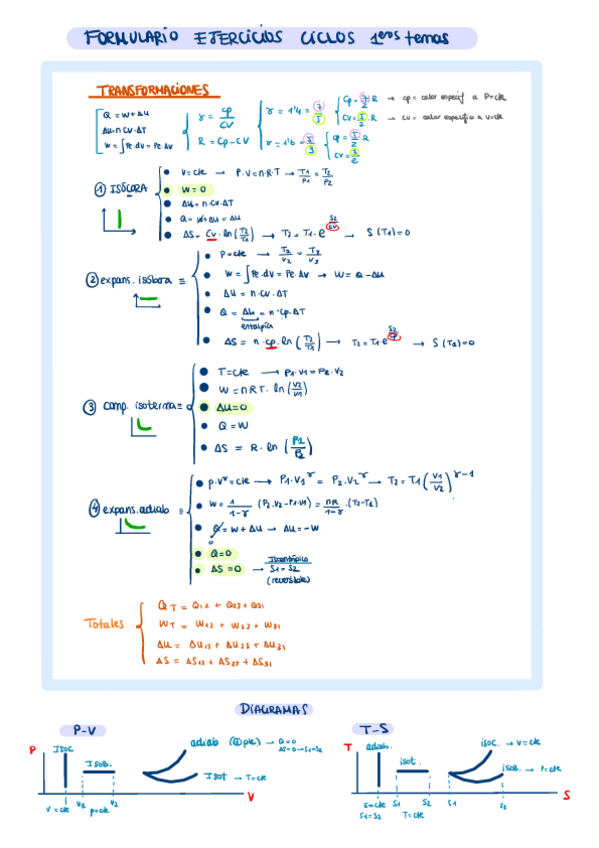 FORMULARIO EJERCICIOS CICLOS 1eros temas
TRANSFORMACIONES
Q = W + ΔU
ΔU = n·CV·ΔT
W = ∫Pe·dV = Pe·ΔV
γ = cp/cv
R = Cp - CV
γ = 1'4 = 7/5
Cp = 7/2·R → cp = calor especif a P=cte
CV = 5/2·R → cv = calor especifico a V=cte
γ = 1'6 = 5/3
Cp = 5/2·R
CV = 3/2
① ISÓCORA
V=cte → P·V=n·R·T → T1/P1 = T2/P2
W = 0
ΔU = n·CV·ΔT
Q = W+ΔU = ΔU
ΔS = CV·ln(T2/T1) → T2 = T1·e^(S2/CV) → S(T1)=0
② expans. isóbara =
P=cte → T2/V2 = T3/V3
W = ∫Pe·dV = Pe·ΔV → W = Q - ΔU
ΔU = n·CV·ΔT
Q = Δh = n·Cp·ΔT
entalpía
ΔS = n·cp·ln(T2/T1) → T2=T1·e^(S2/cp) → S(T1)=0
③ comp. isoterma =
T=cte → P1·V1 = P2·V2
W = nRT·ln(V2/V1)
ΔU=0
Q=W
ΔS = R·ln(P1/P2)
④ expans.adiab =
p·V^γ=cte → P1·V1^γ = P2·V2^γ → T2 = T1(V1/V2)^γ-1
W = 1/1-γ (P2·V2-P1·V1) = nR/1-γ·(T2-T1)
Q = W + ΔU → ΔU = -W
0
Q=0
ΔS=0 → Isentrópico S1=S2 (reversible)
Totales
QT = Q12 + Q23 + Q31
WT = W12 + W23 + W31
ΔU = ΔU12 + ΔU23 + ΔU31
ΔS = ΔS12 + ΔS23 + ΔS31
DIAGRAMAS
P-V
T-S
P
Isoc
Isob.
adiab (④pte) → Q=0
ΔS=0→S1=S2
Isot → T=cte
V=cte
V1
V2
p=cte
V
T
adiab.
isot.
isoc. → V=cte
isob. → P=cte
S=cte
S1=S2
S1
S2
T=cte
S1
S2
S